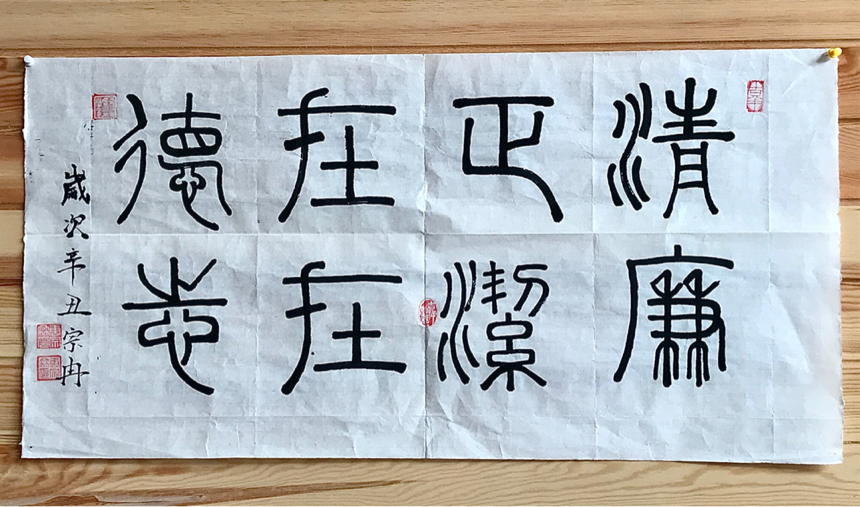 清廉
正潔
在在
德志
歲次辛丑宗冉